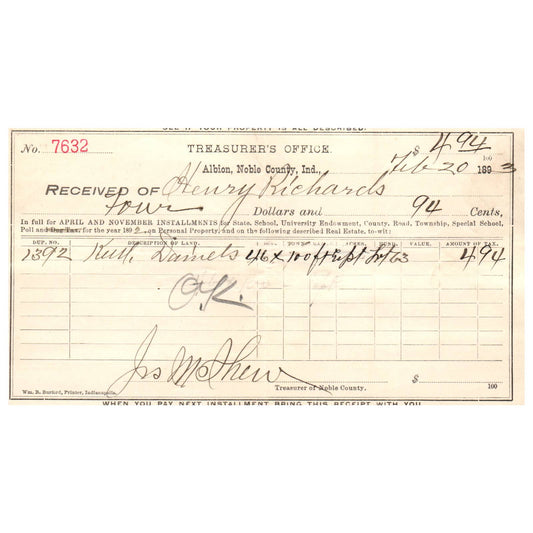 SEE IF YOUR PROPERTY IS ALL DESCRIBED.
No. 7632 TREASURER'S OFFICE. $ 4 94/100
Albion, Noble County, Ind., Feb 20 1893
RECEIVED OF Henry Richards
Four Dollars and 94 Cents,
In full for APRIL AND NOVEMBER INSTALLMENTS for State, School, University Endowment, County, Road, Township, Special School,
Poll and Dog Tax, for the year 1892, on Personal Property, and on the following described Real Estate, to-wit:
DUP. NO. DESCRIPTION OF LAND. SEC. TOWN RANGE ACRES. VALUE. AMOUNT OF TAX.
1392 Daniels 46 x 100 ft 63 4 94
O.K.
Jas McShew
Treasurer of Noble County. $ 100
Wm. B. Burford, Printer, Indianapolis.
WHEN YOU PAY NEXT INSTALLMENT BRING THIS RECEIPT WITH YOU.